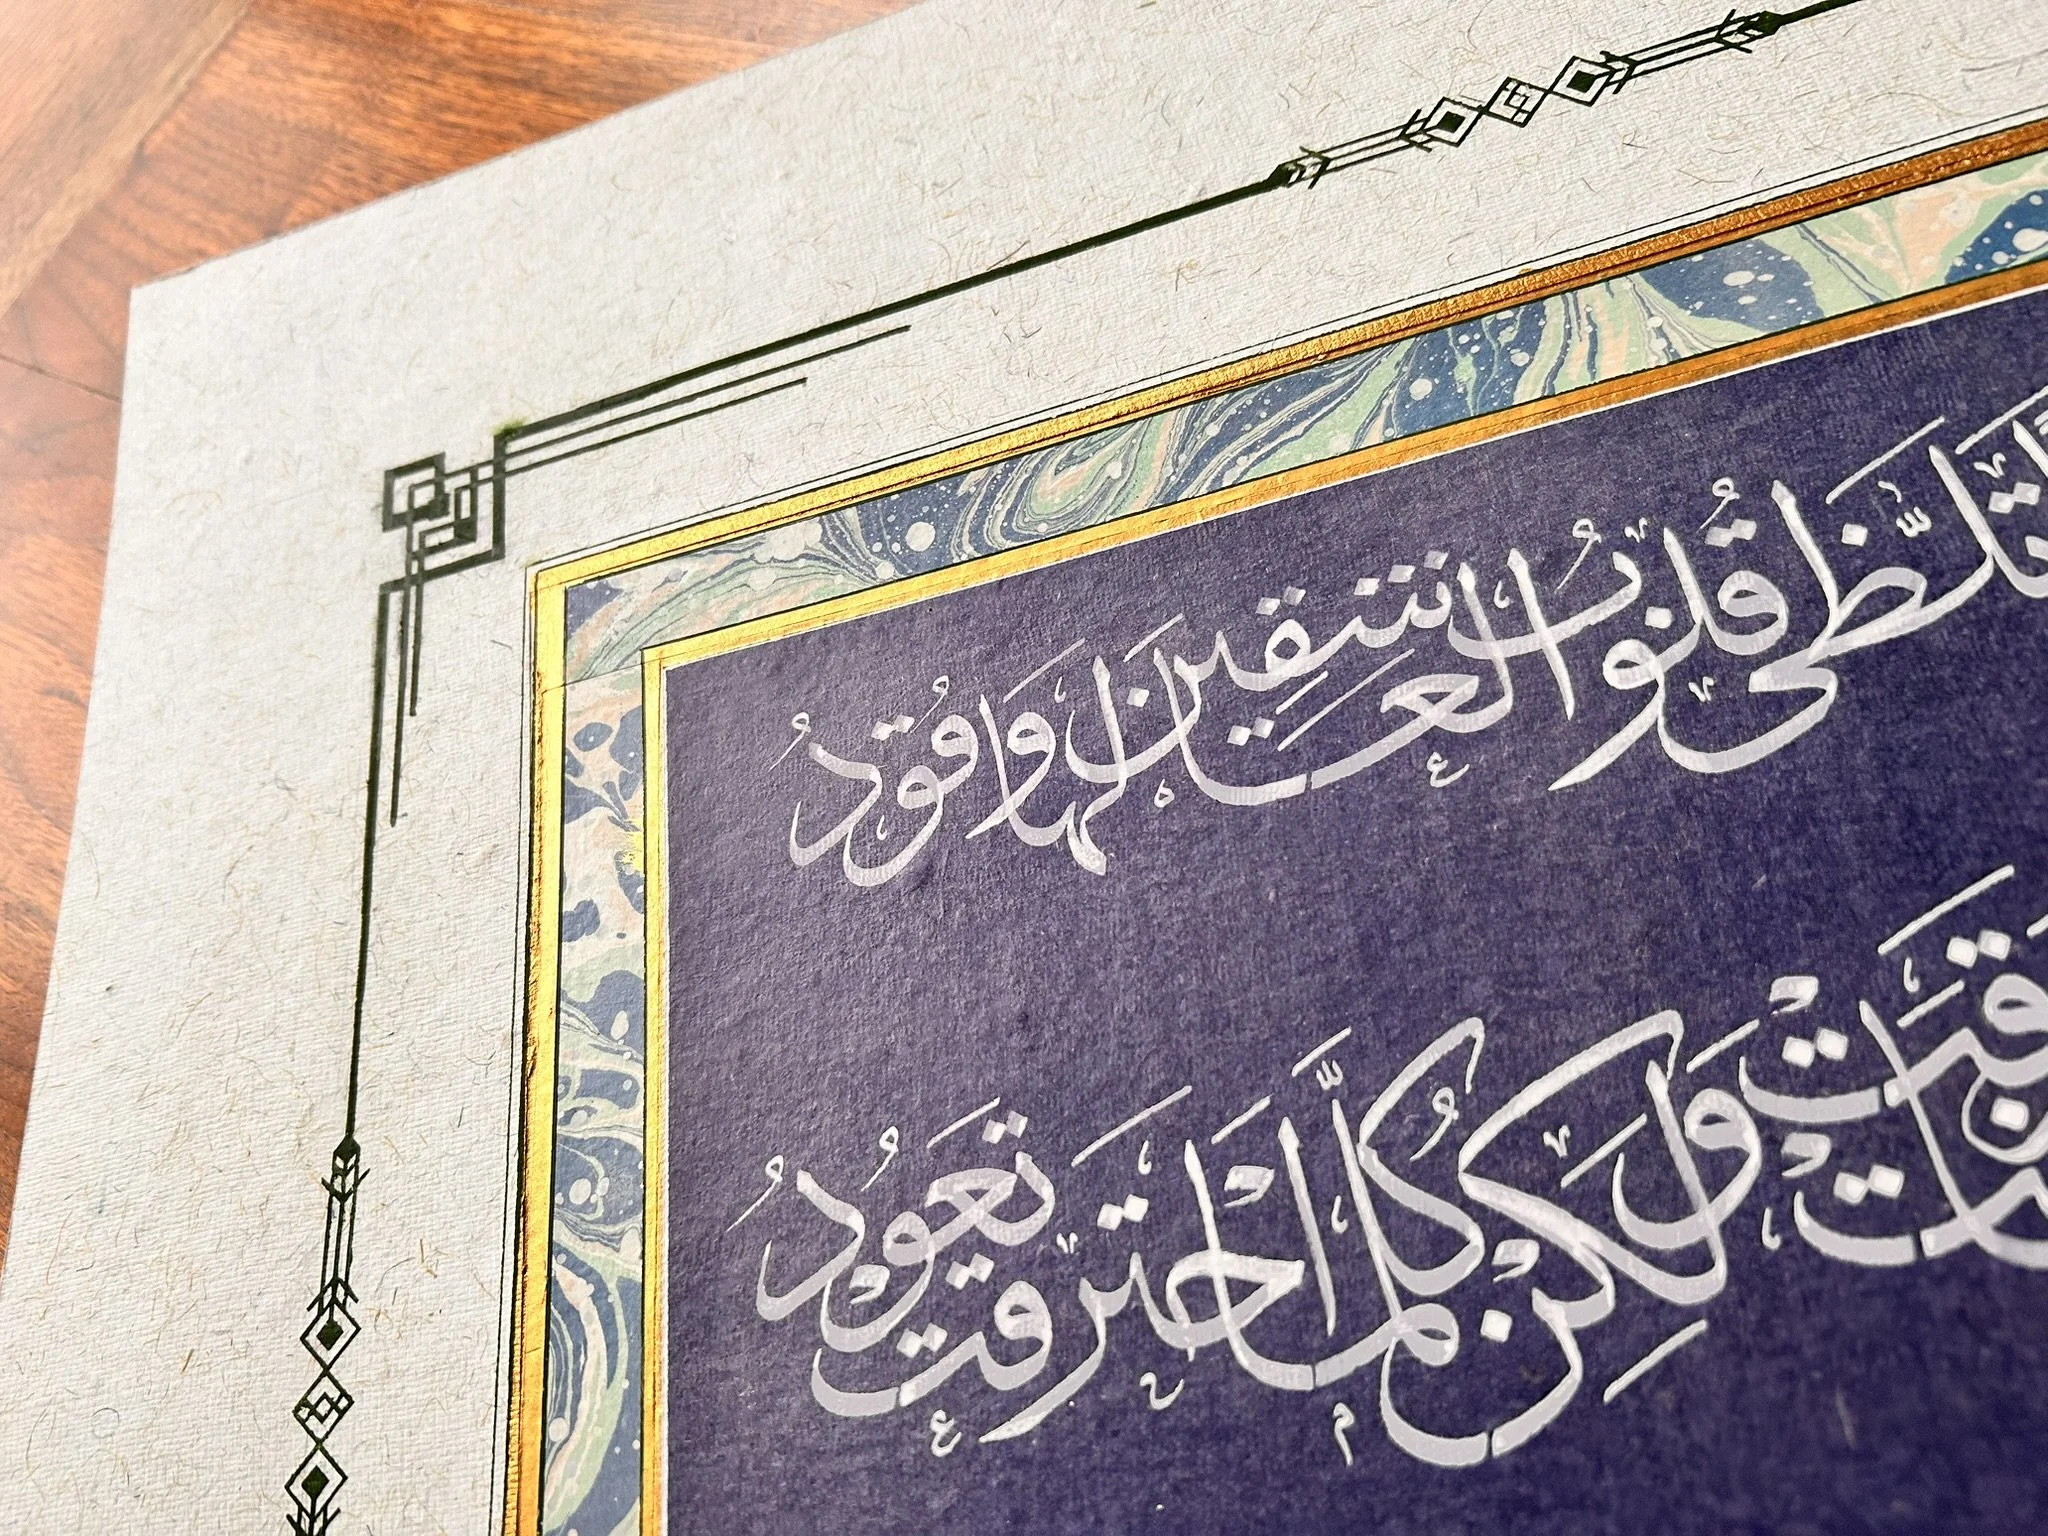 تَلَظَّى قُلُوبُ الْعَاشِقِينَ لَهَا وَقُودُ
وَلَكِنْ كُلَّمَا احْتَرَقَتْ تَعُودُ